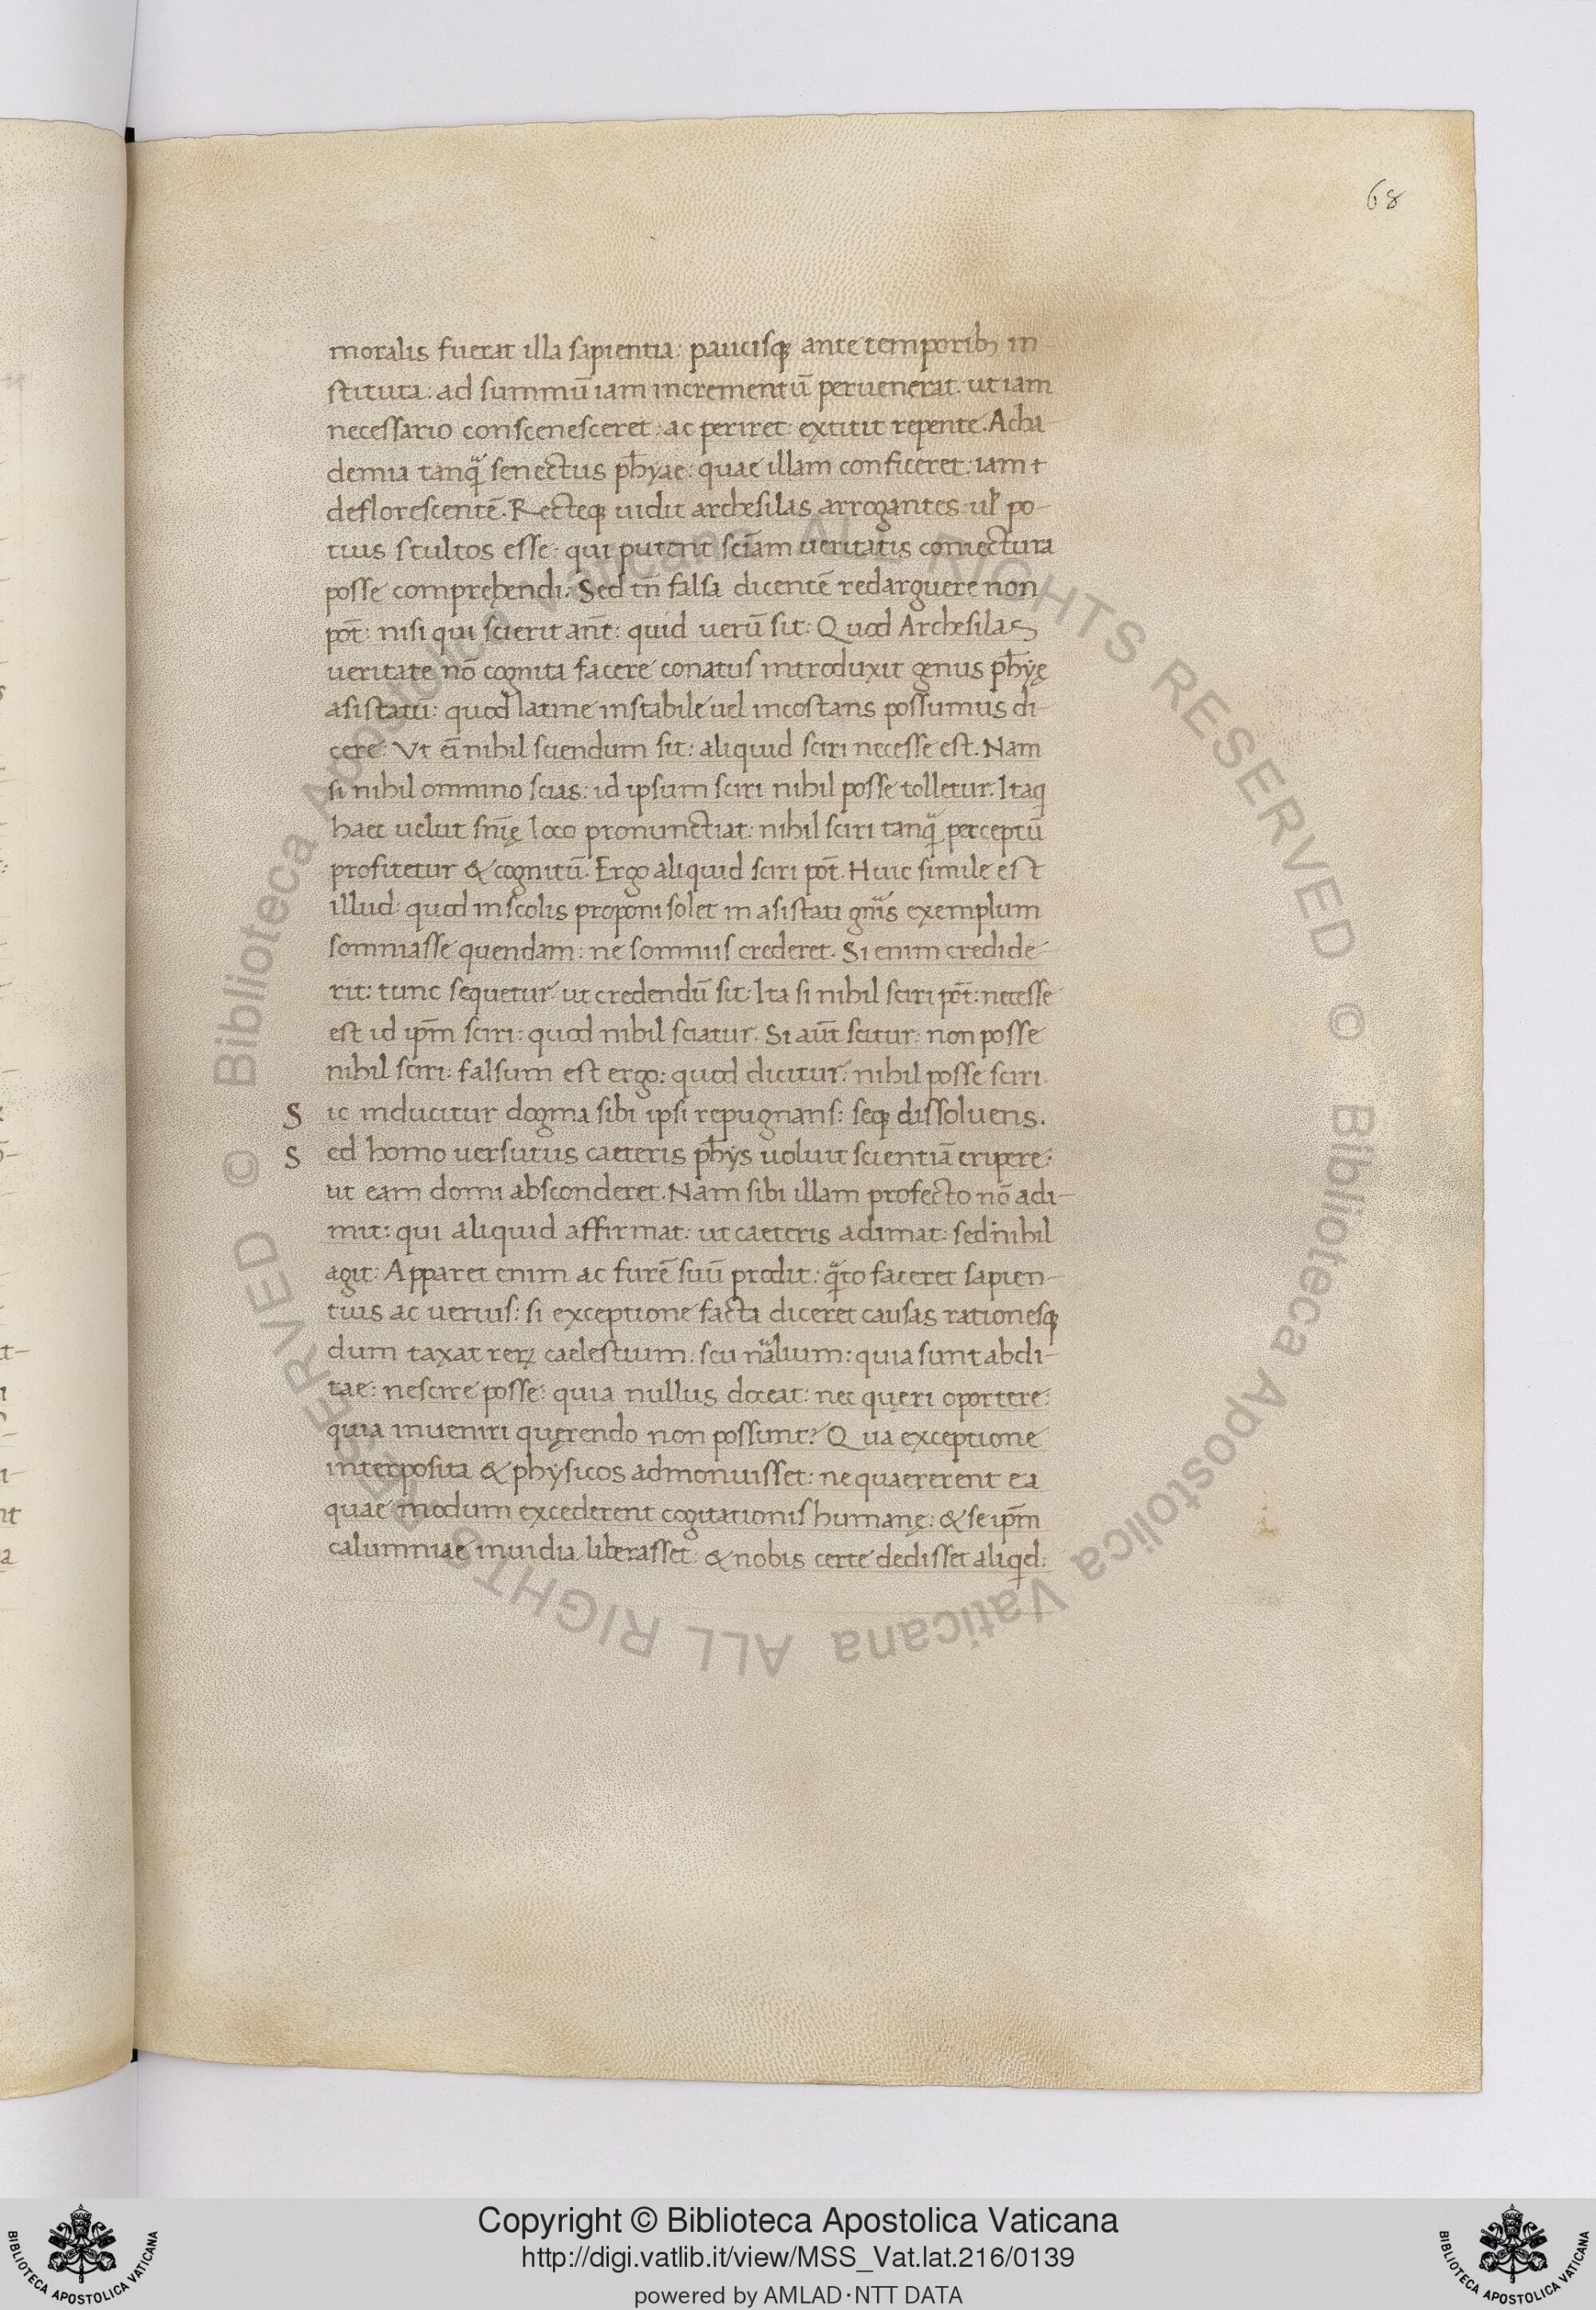 68
moralis fuerat illa sapientia: paucisq; ante temporib; in
stituta: ad summū iam incrementū peruenerat: ut iam
necessario conscenesceret: ac periret: extitit repente. Acha
demia tanq̃ senectus ph̄yae: quae illam conficeret: iam t
deflorescentē. Recteq; uidit archesilas arrogantes: uł po-
tius stultos esse: qui putent sciam ueritatis coniectura
posse compręhendi. Sed tn̄ falsa dicentē redarguere non
pōt: nisi qui scierit ant̄: quid uerū sit: Quod Archesilas
ueritate nō cognita facere conatus introduxit genus ph̄yę
asistatū: quod latine instabile uel incostans possumus di-
cere: Vt ei nihil sciendum sit: aliquid sciri necesse est. Nam
si nihil omnino scias: id ipsum sciri nihil posse tolletur. Itaq
haec uelut sn̄ię loco pronunctiat: nihil sciri tanq̃ perceptū
profitetur & cognitū: Ergo aliquid sciri pōt. Huic simile est
illud: quod in scolis proponi solet in asistati gn̄is exemplum
somniasse quendam: ne somniis crederet. Si enim credide-
rit: tunc sequetur ut credendū sit: Ita si nihil sciri pōt: necesse
est id ip̄m sciri: quod nihil sciatur. Si aūt scitur: non posse
nihil sciri: falsum est ergo: quod dicitur: nihil posse sciri.
S ic inducitur dogma sibi ipsi repugnans: seq; dissoluens.
S ed homo uersutus caeteris ph̄ys uoluit scientiā eripere:
ut eam domi absconderet. Nam sibi illam profecto nō adi-
mit: qui aliquid affirmat: ut caeteris adimat: sed nihil
agit: Apparet enim ac furē suū prodit: q̃to faceret sapien-
tius ac uerius: si exceptione facta diceret causas rationesq;
dum taxat reꝝ caelestium: seu nālium: quia sunt abdi-
tae: nescire posse: quia nullus doceat: nec quęri oportere:
quia inueniri quęrendo non possunt? Qua exceptione
interposita & physicos admonuisset: ne quaererent ea
quae modum excederent cogitationis humanę: & se ip̄m
calumniae inuidia liberasset: & nobis certe dedisset aliqd:
© Biblioteca Apostolica Vaticana ALL RIGHTS RESERVED
© Biblioteca Apostolica Vaticana ALL RIGHTS RESERVED
Copyright © Biblioteca Apostolica Vaticana
http://digi.vatlib.it/view/MSS_Vat.lat.216/0139
powered by AMLAD·NTT DATA
BIBLIOTECA APOSTOLICA VATICANA
BIBLIOTECA APOSTOLICA VATICANA